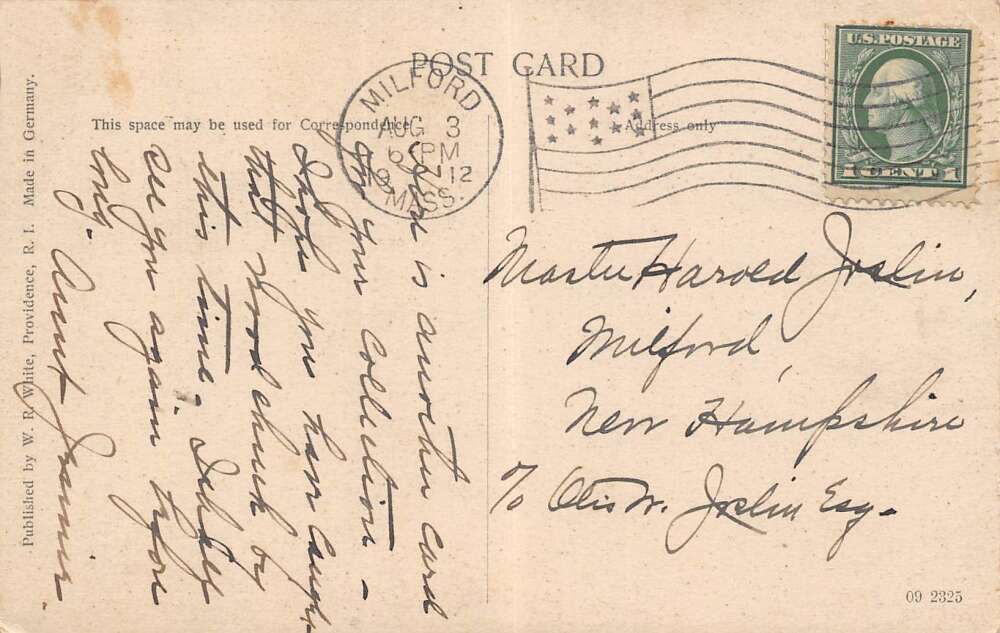 POST CARD
This space may be used for Correspondence
Address only
MILFORD
AUG 3
6 PM
1912
MASS.
U.S. POSTAGE
1 CENT 1
Here is another card
for your collection -
I hope you have caught
that Woodchuck by
this time. I shall
see you again before
long. Aunt
Master Harold Joslin,
Milford,
New Hampshire
c/o Otis W. Joslin Esq.
Published by W. R. White, Providence, R. I. Made in Germany.
09 2325